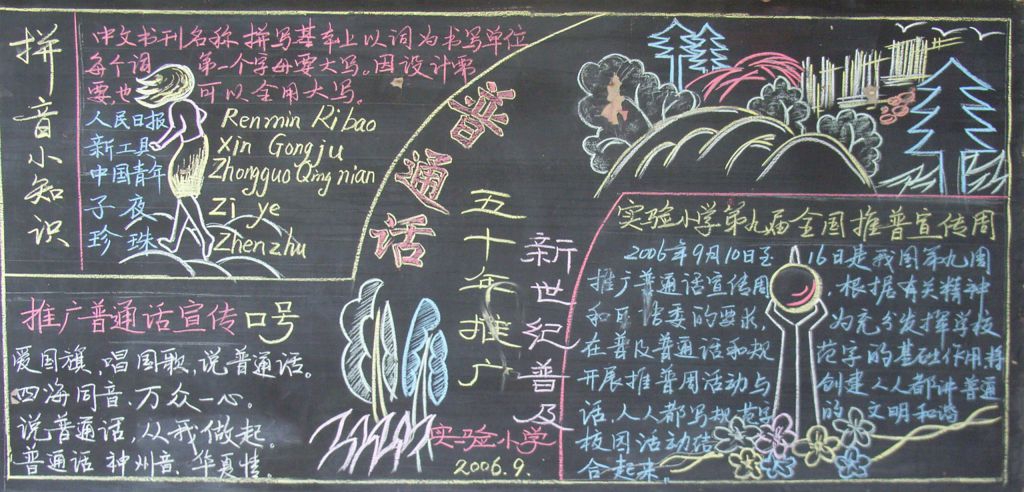 拼音小知识
中文书刊名称拼写基本上以词为书写单位
每个词 第一个字母要大写。因设计需
要,也 可以全用大写。
人民日报 Renmin Ribao
新工具 Xin Gongju
中国青年 Zhongguo Qingnian
子夜 Zi ye
珍珠 Zhenzhu
推广普通话宣传口号
爱国旗,唱国歌,说普通话。
四海同音,万众一心。
说普通话,从我做起。
普通话 神州音,华夏情。
普通话
五十年推广
新世纪普及
实验小学
2006.9.
实验小学第九届全国推普宣传周
2006年9月10日至 16日是我国第九周
推广普通话宣传周 ,根据有关精神
和 语委的要求, 为充分发挥学校
在普及普通话和规 范字的基础作用,将
开展推普周活动与 创建人人都讲普通
话,人人都写规 的 文明和谐
校园活动结
合起来。